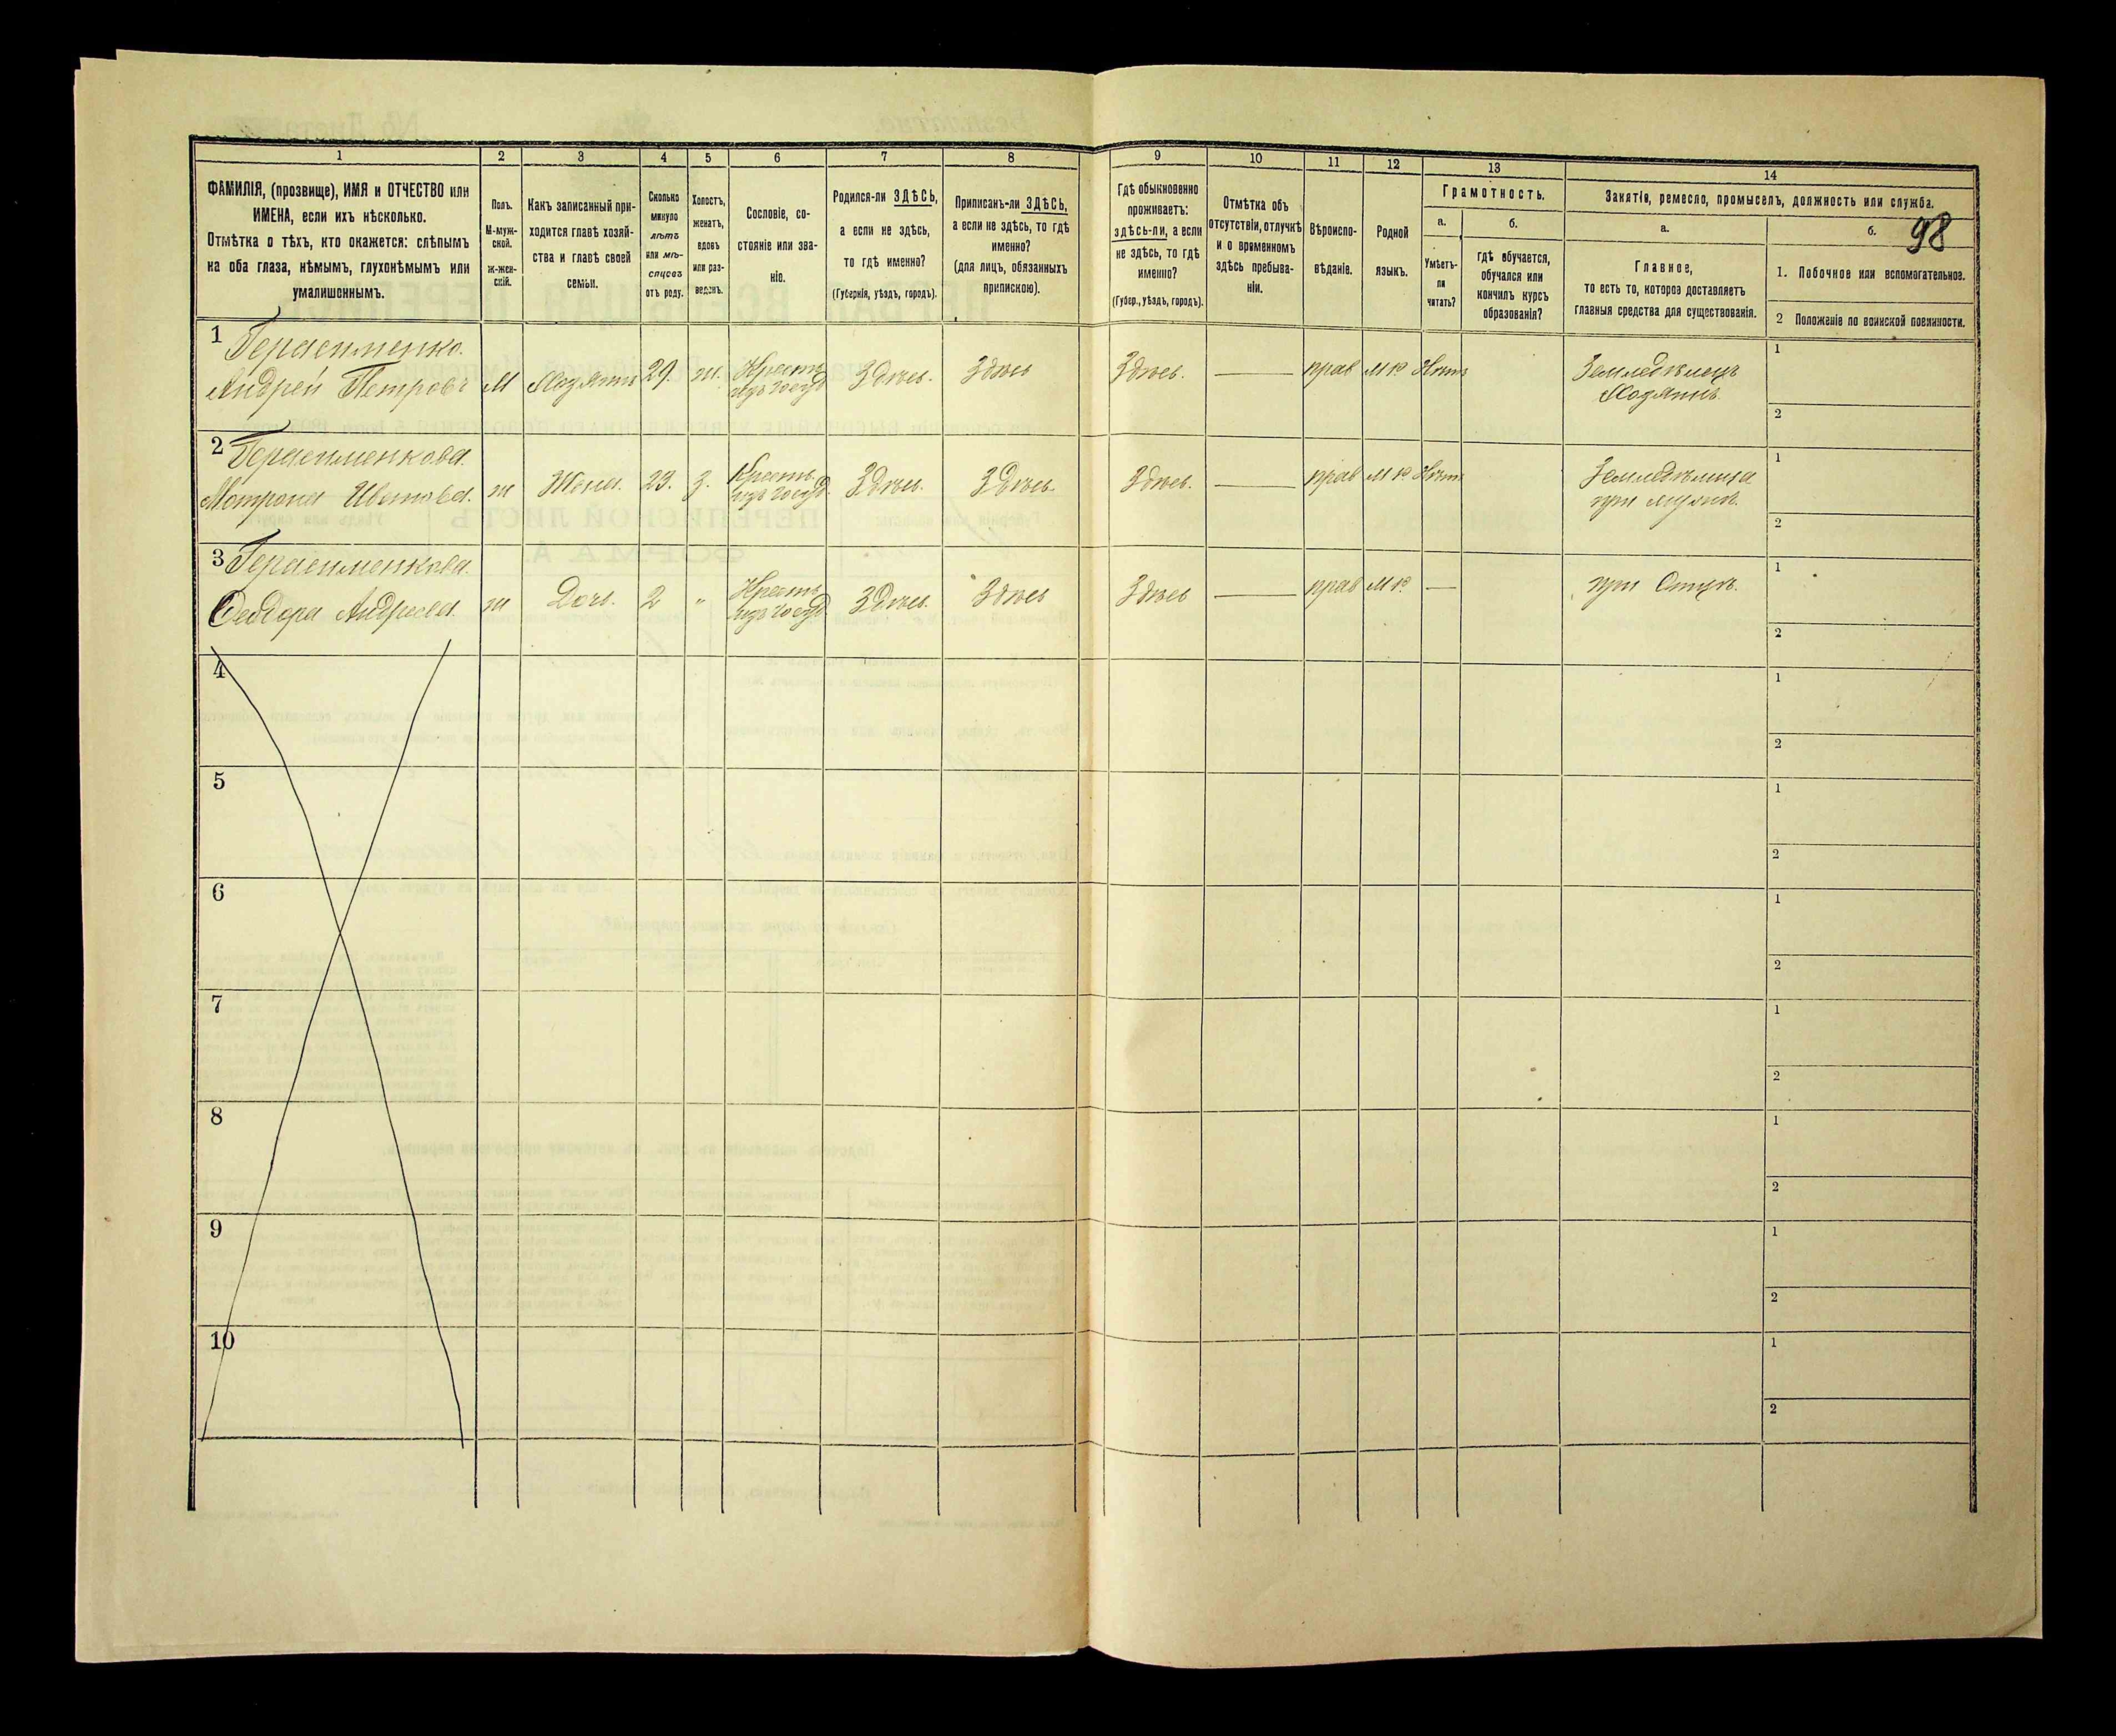 98
1 2 3 4 5 6 7 8 9 10 11 12 13 14
ФАМИЛІЯ, (прозвище), ИМЯ и ОТЧЕСТВО или
ИМЕНА, если ихъ нѣсколько.
Отмѣтка о тѣхъ, кто окажется: слѣпымъ
на оба глаза, нѣмымъ, глухонѣмымъ или
умалишоннымъ.
Полъ.
М-муж-
ской.
Ж-жен-
скій.
Какъ записанный при-
ходится главѣ хозяй-
ства и главѣ своей
семьи.
Сколько
минуло
лѣтъ
или мѣ-
сяцевъ
отъ роду.
Холостъ,
женатъ,
вдовъ
или раз-
веденъ.
Сословіе, со-
стояніе или зва-
ніе.
Родился-ли ЗДѢСЬ,
а если не здѣсь,
то гдѣ именно?
(Губернія, уѣздъ, городъ).
Приписанъ-ли ЗДѢСЬ,
а если не здѣсь, то гдѣ
именно?
(для лицъ, обязанныхъ
припискою).
Гдѣ обыкновенно
проживаетъ:
здѣсь-ли, а если
не здѣсь, то гдѣ
именно?
(Губер., уѣздъ, городъ).
Отмѣтка объ
отсутствіи, отлучкѣ
и о временномъ
здѣсь пребыва-
ніи.
Вѣроиспо-
вѣданіе.
Родной
языкъ.
Грамотность.
а.
Умѣетъ-
ли
читать?
б.
гдѣ обучается,
обучался или
кончилъ курсъ
образованія?
Занятіе, ремесло, промыселъ, должность или служба.
а.
Главное,
то есть то, которое доставляетъ
главныя средства для существованія.
б.
1. Побочное или вспомогательное.
2 Положеніе по воинской повинности.
1 Герасименко.
Андрей Петровъ М Хозяинъ 29. ж. Крестъ. изъ госуд Здѣсь. Здѣсь Здѣсь. — прав МР Нѣтъ Земледѣлецъ Хозяинъ. 1 2
2 Герасименкова.
Матрона Иванова. ж Жена. 23. З. Крестъ. изъ госуд. Здѣсь. Здѣсь. Здѣсь. — прав МР Нѣтъ Земледѣлица при мужѣ. 1 2
3 Герасименкова.
Феодора Андреева. ж Дочь. 2 " Крестъ. изъ госуд Здѣсь. Здѣсь Здѣсь — прав МР. — при Отцѣ. 1 2
4 1 2
5 1 2
6 1 2
7 1 2
8 1 2
9 1 2
10 1 2